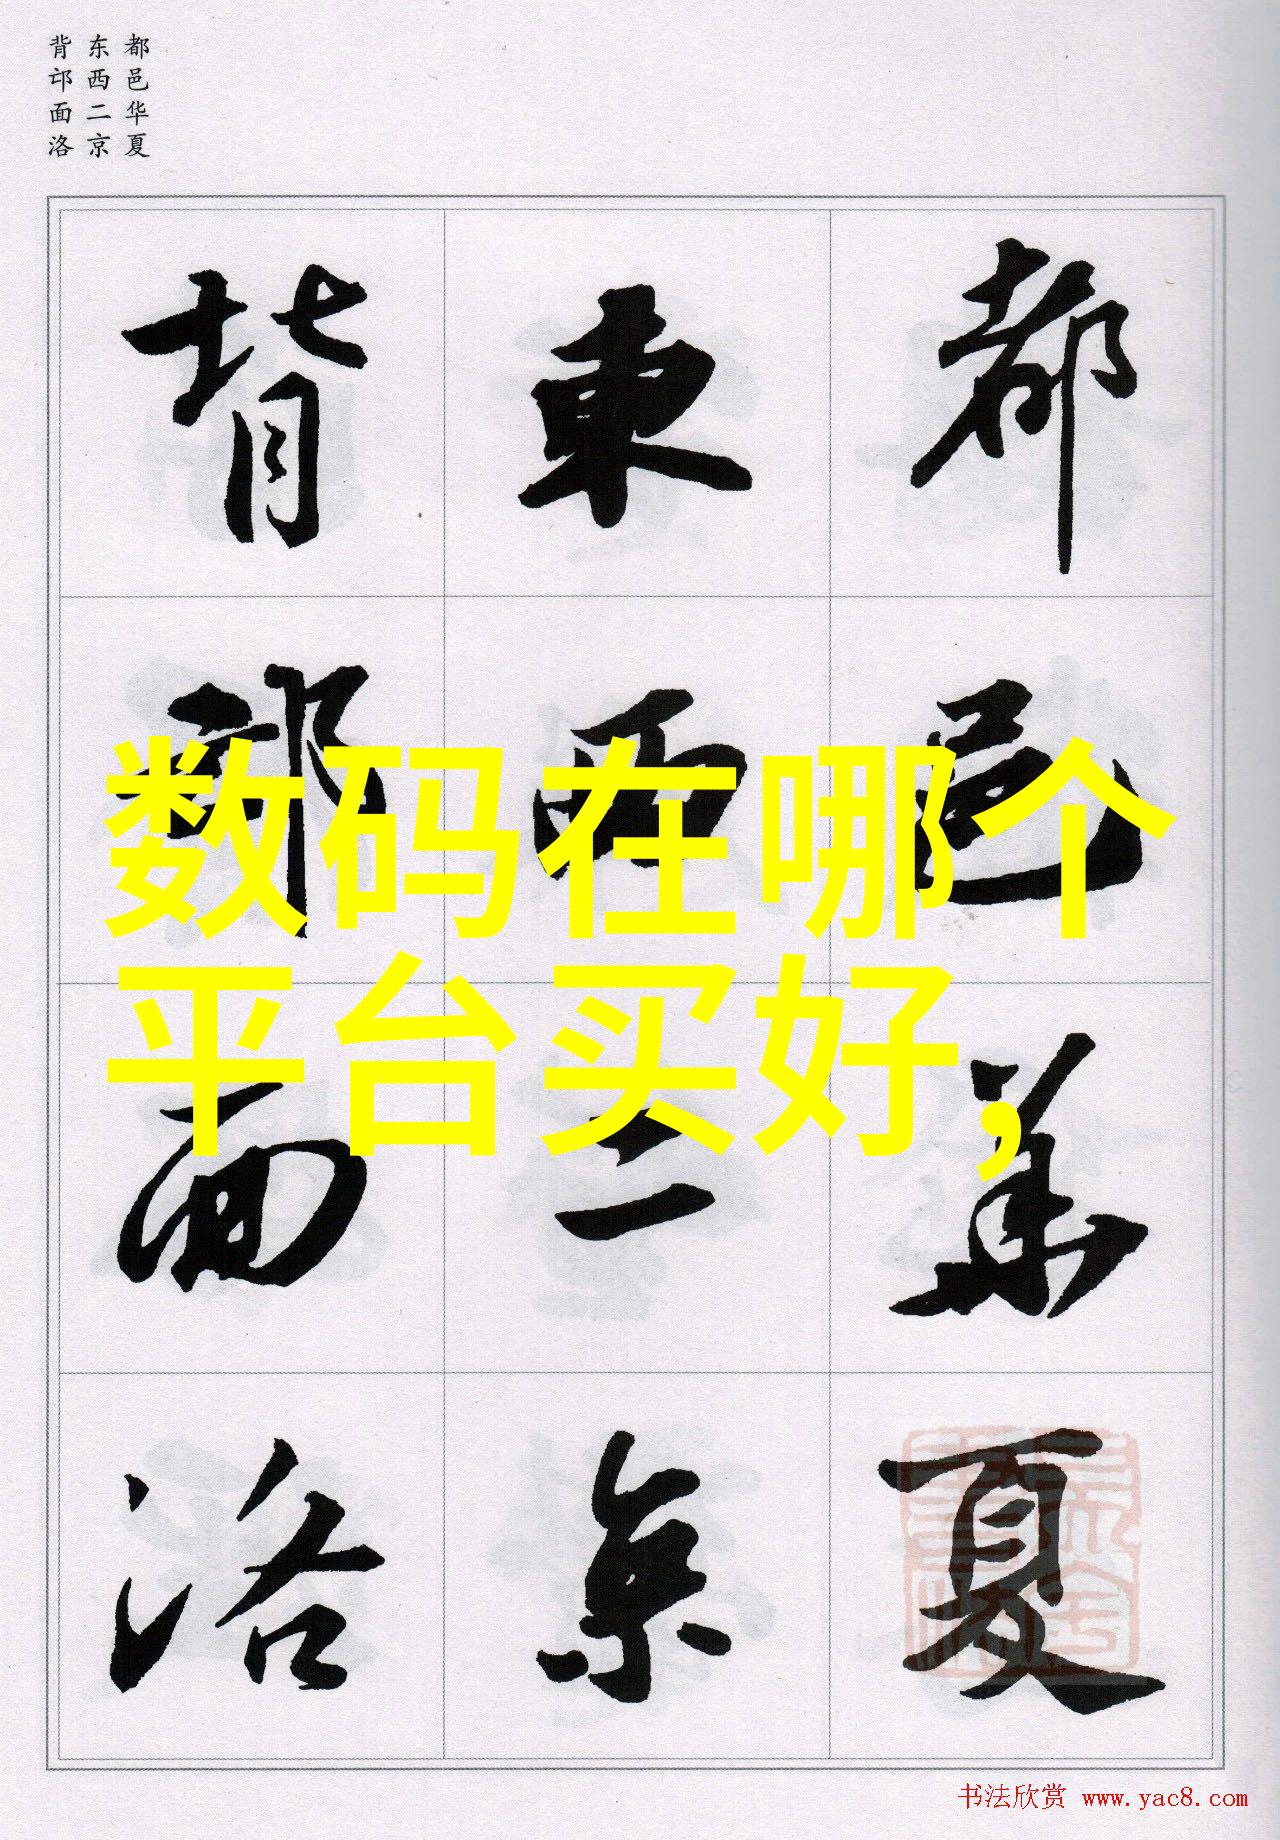 都邑华夏
东西二京
背邙面洛
都邑華夏
東西二京
背邙面洛
数码在哪个
平台买好,
书法欣赏 www.yac8.com